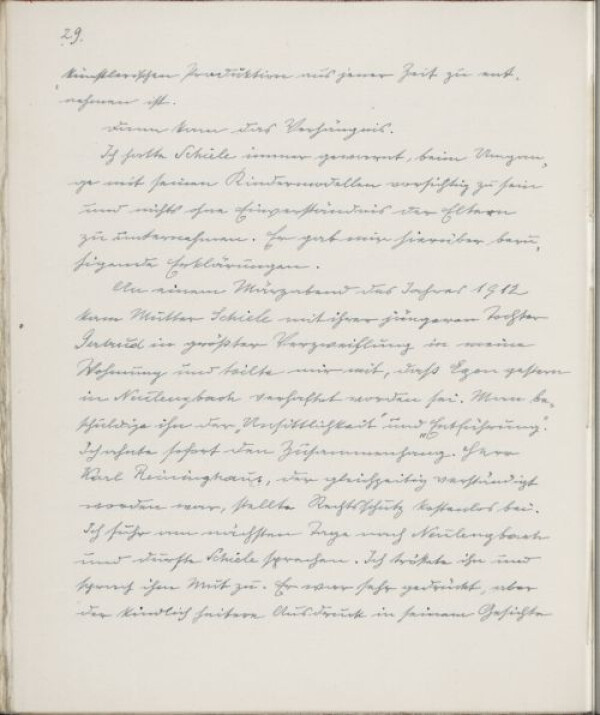 29.
künstlerischen Produktion aus jener Zeit zu ent-
nehmen ist.
Dann kam das Verhängnis.
Ich hatte Schiele immer gewarnt, beim Umgan-
ge mit seinen Kindermodellen vorsichtig zu sein
und nichts ohne Einverständnis der Eltern
zu unternehmen. Er gab mir hierüber beru-
higende Erklärungen.
An einem Märzabend des Jahres 1912
kam Mutter Schiele mit ihrer jüngeren Tochter
Gertrud in größter Verzweiflung in meine
Wohnung und teilte mir mit, daß Egon gestern
in Neulengbach verhaftet worden sei. Man be-
schuldige ihn der „Unsittlichkeit" und „Entführung".
Ich ahnte sofort den Zusammenhang. Herr
Karl Reininghaus, der gleichzeitig verständigt
worden war, stellte Rechtsschutz kostenlos bei.
Ich fuhr am nächsten Tage nach Neulengbach
und durfte Schiele sprechen. Ich tröstete ihn und
sprach ihm Mut zu. Er war sehr gedrückt, aber
der kindlich heitere Ausdruck in seinem Gesichte